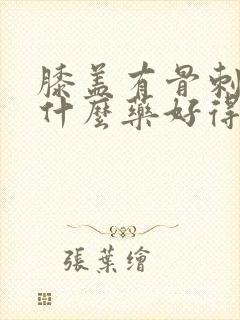 膝盖有骨刺
什麼藥好得
張葉繪